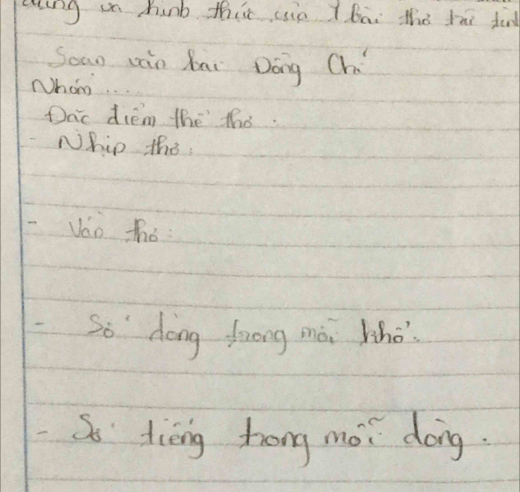 dung và hình thức của 1 bài thơ trữ tình
Soạn văn bài Đồng Chí
Nhóm ...
Đặc điểm thể thơ.
- Nhịp thơ:
- Vần thơ:
- Số dòng trong mỗi khổ.
- Số tiếng trong mỗi dòng.